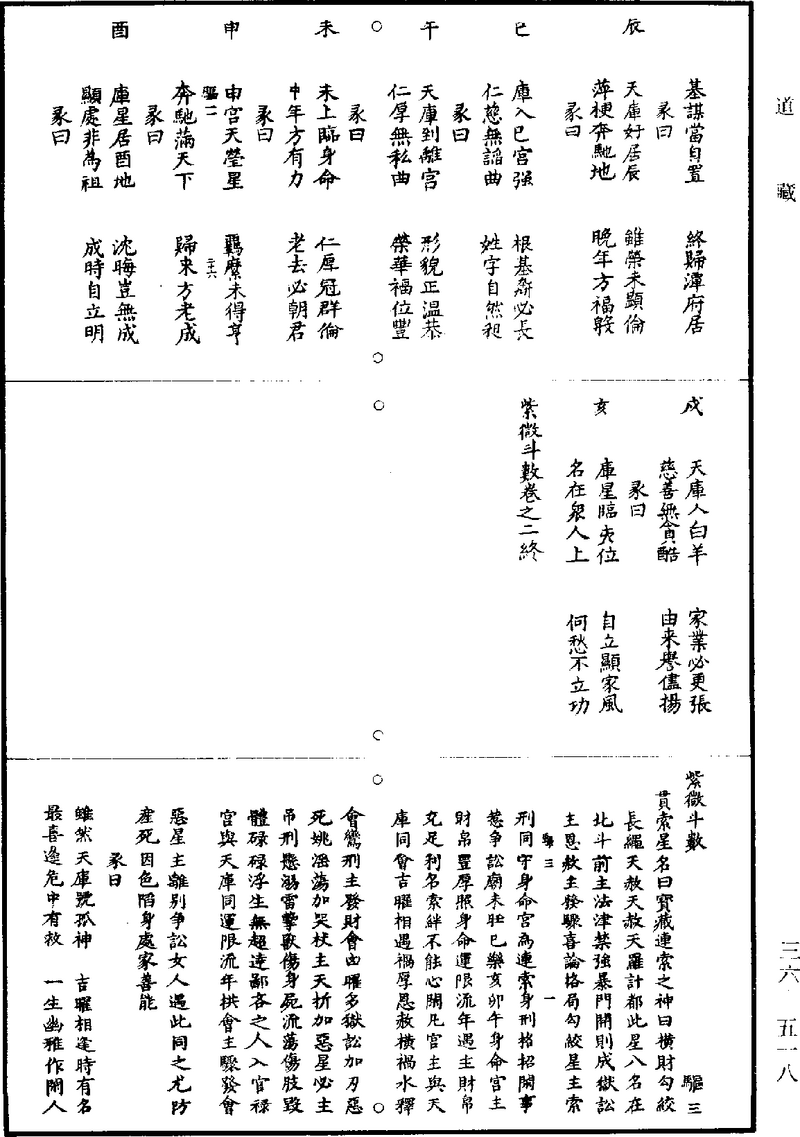 道藏
基謀當自置　終歸潭府居
彖曰
辰
天庫好居辰　雖榮未顯倫
萍梗奔馳地　晚年方福敦
彖曰
巳
庫入巳宮強　根基漸必長
仁慈無謟曲　姓字自然昶
彖曰
午
天庫到離宮　形貌正溫恭
仁厚無私曲　榮華福位豐
彖曰
未
未上臨身命　仁厚冠群倫
中年方有力　老去必朝君
彖曰
申
申宮天瑩星　羈縻未得亨
驅二　二十六
奔馳滿天下　歸來方老成
彖曰
酉
庫星居酉地　沈晦豈無成
顯處非為祖　成時自立明
彖曰
戌
天庫人白羊　家業必更張
慈善無貪酷　由來譽儘揚
彖曰
亥
庫星臨亥位　自立顯家風
名在衆人上　何愁不立功
紫微斗數卷之二終
紫微斗數　驅三
貫索星名曰寳藏連索之神曰橫財勾絞
長繩天赦天赦天羅計都此星八名在
北斗前主法津禁強暴門開則成獄訟
主恩赦主發驟喜論格局勾絞星主索
驅三　一
刑同守身命宮為連索身刑格招閑事
惹爭訟廟未旺巳樂亥卯午身命宮主
財帛豐厚照身命運限流年遇主財帛
充足利名索絆不能心閑凡宮主與天
庫同會吉曜相遇禍厚恩赦橫禍水釋
會鸞刑主發財會凶曜多獄訟加刃惡
死姚滛蕩加哭杖主夭折加惡星必主
吊刑懸溺雷擊獸傷身屍流蕩傷肢毀
體碌碌浮生無超達鄙吝之人入官祿
宮與天庫同運限流年拱會主驟發會
惡星主離別爭訟女人遇此同之尤防
産死因色陷身處家善能
彖曰
雖然天庫號孤神　吉曜相逢時有名
最喜逢危中有救　一生幽雅作閑人
三六　五一八